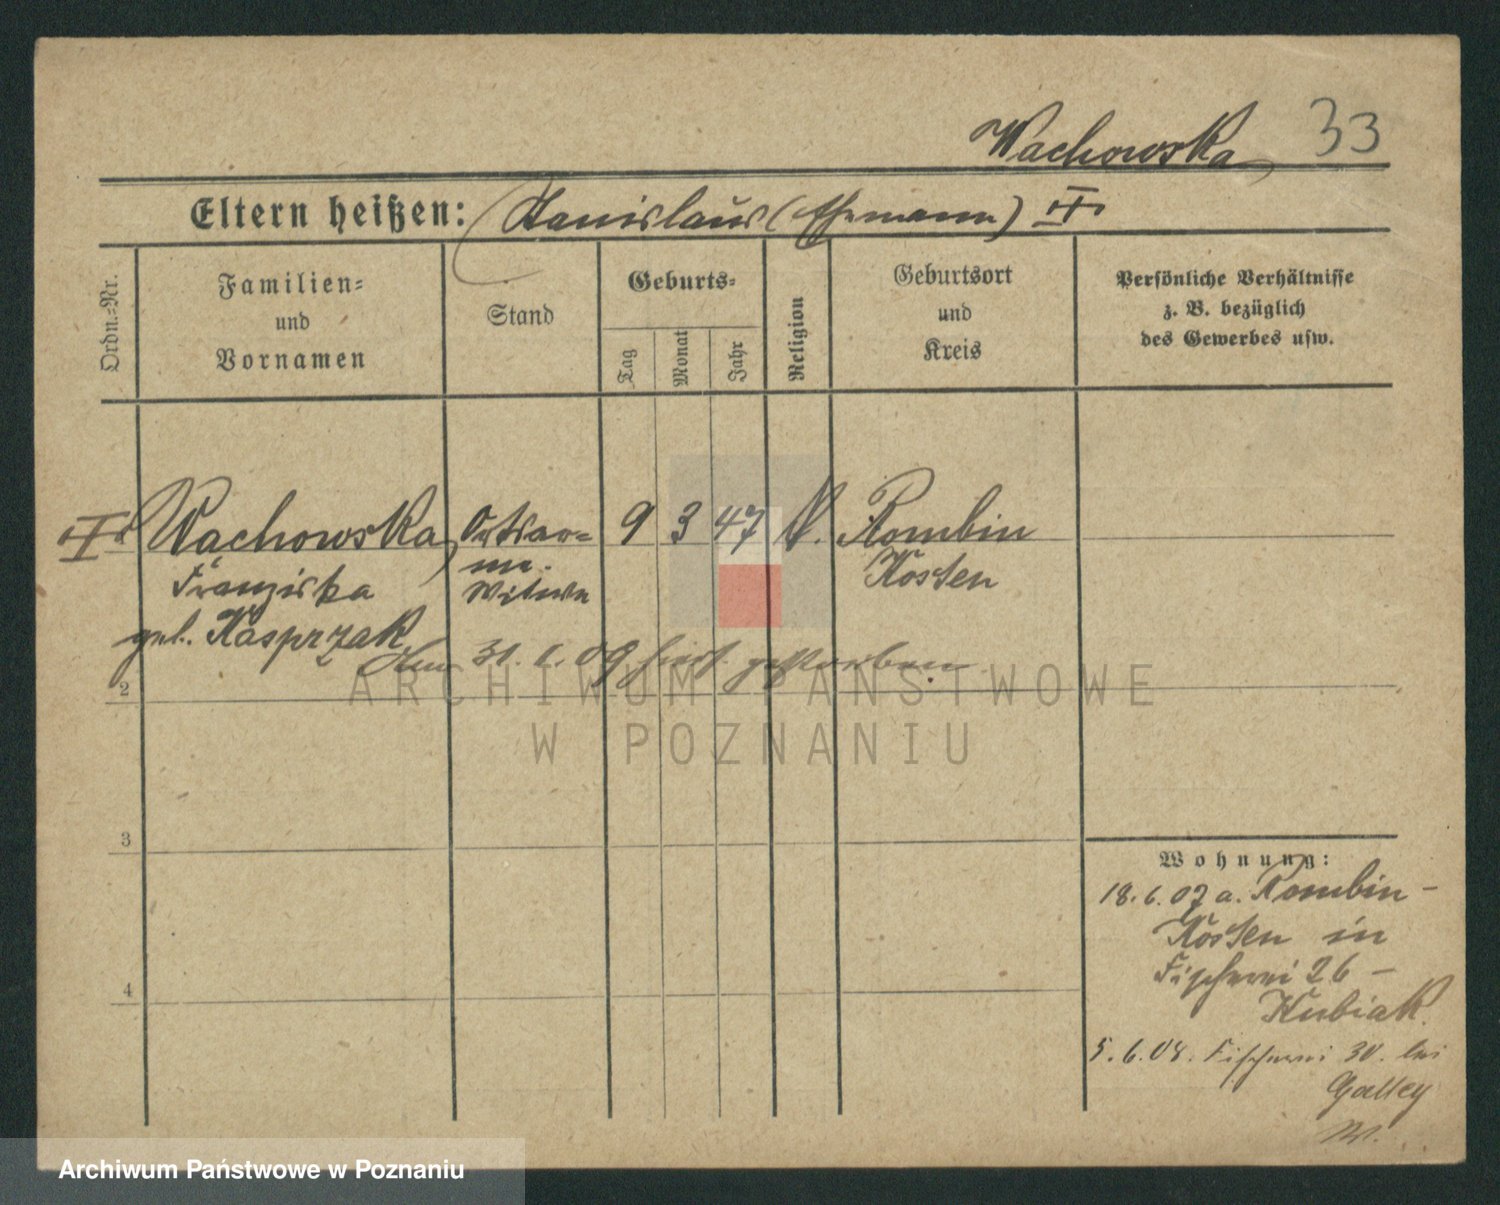 Wachowska 33
Eltern heißen: Stanislaus (Ehemann)
Ordn.-Nr.
Familien-
und
Vornamen
Stand
Geburts-
Tag
Monat
Jahr
Religion
Geburtsort
und
Kreis
Persönliche Verhältnisse
z. B. bezüglich
des Gewerbes usw.
Wachowska Ortsar= 9 3 47 k. Rombin
Franziska me. Kosten
geb. Kasprzak Witwe
31. 1. 09 hier gestorben.
2
3
4
Wohnung:
18. 6. 07 a. Rombin -
Kosten in
Fischerei 26 -
Kubiak.
5. 6. 08. Fischerei 30. bei
Galley
ARCHIWUM PAŃSTWOWE
W POZNANIU
Archiwum Państwowe w Poznaniu